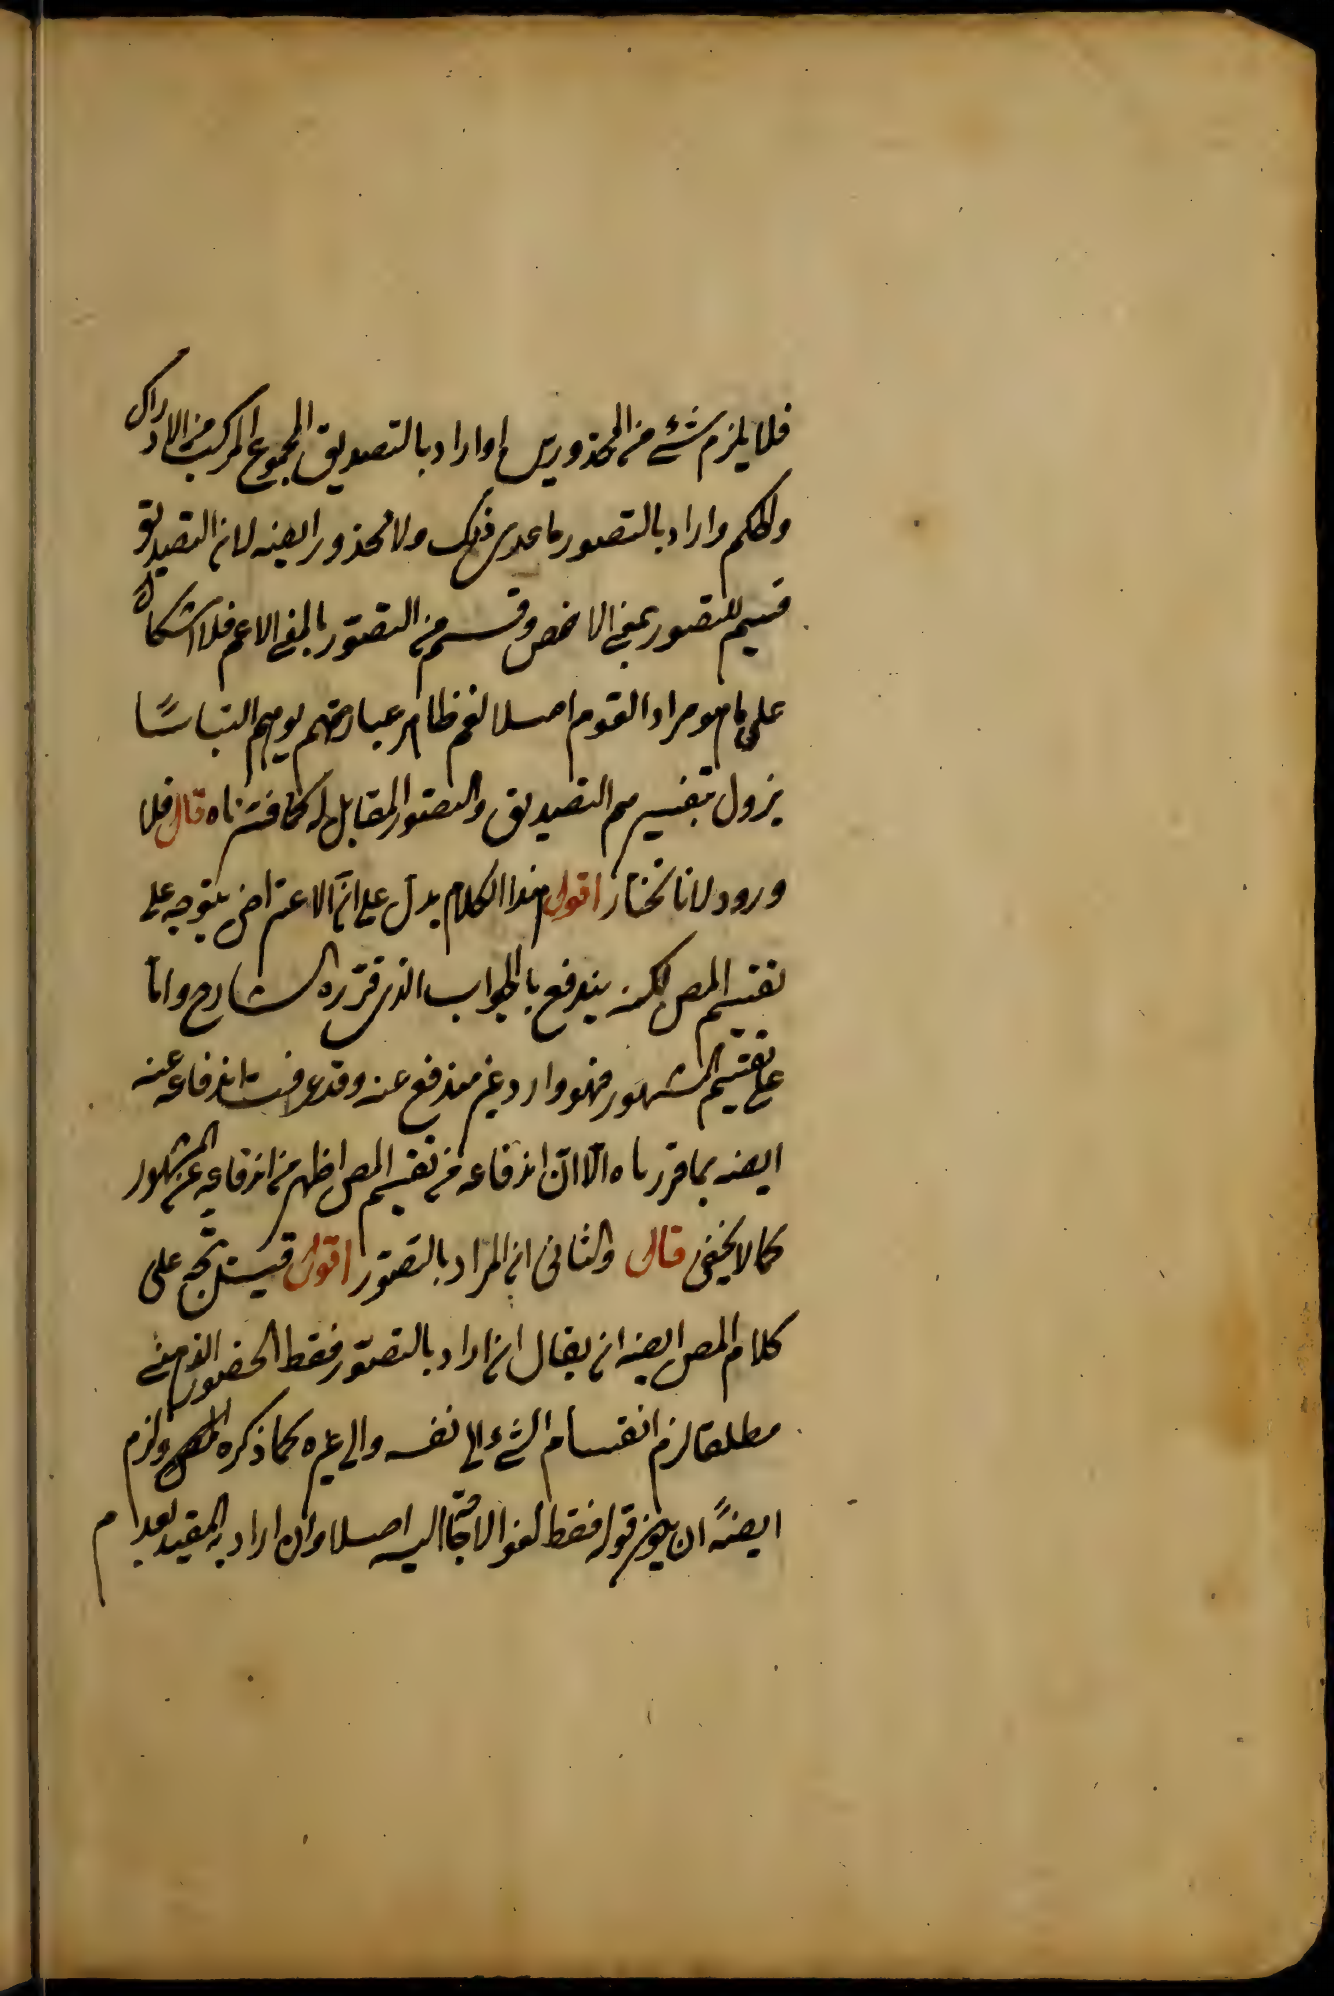 فلا يلزم شئ من المحذورين او اراد بالتصديق المجموع المركب من الادراك
والحكم واراد بالتصور ما عدى ذلك ولا محذور ايضه لان التصديق
قسيم للتصور بمعنى الاخص وقسم من التصوّر بالمعنى الاعم فلا اشكال
على ما هو مراد القوم اصلا نعم ظاهر عبارتهم يوهم التباسًا
يزول بتفسيرهم التصديق والتصور المقابل له كما فسّرناه قال فلا
ورود لانا نختار اقول هذا الكلام يدل على انّ الاعتراض يتوجه على
تقسيم المص لكنه يندفع بالجواب الذى قرّره الشارح وامّا
على تقسيم المشهور فهو وارد غير مندفع عنه وقد عرفت اندفاعه عنه
ايضه بما قررناه الّا انّ اندفاعه من تقسيم المص اظهر من اندفاعه عن المشهور
كما لا يخفى قال والثانى ان المراد بالتصوّر اقول قيل يتّجه على
كلام المص ايضه ان يقال ان اراد بالتصوّر فقط الحضور الذهنى
مطلقا لزم انقسام الشئ الى نفسه والى غيره كما ذكره المص ولزم
ايضًه ان يكون قوله فقط لغوا لا حاجة اليه اصلا وان اراد به المقيد بعدم